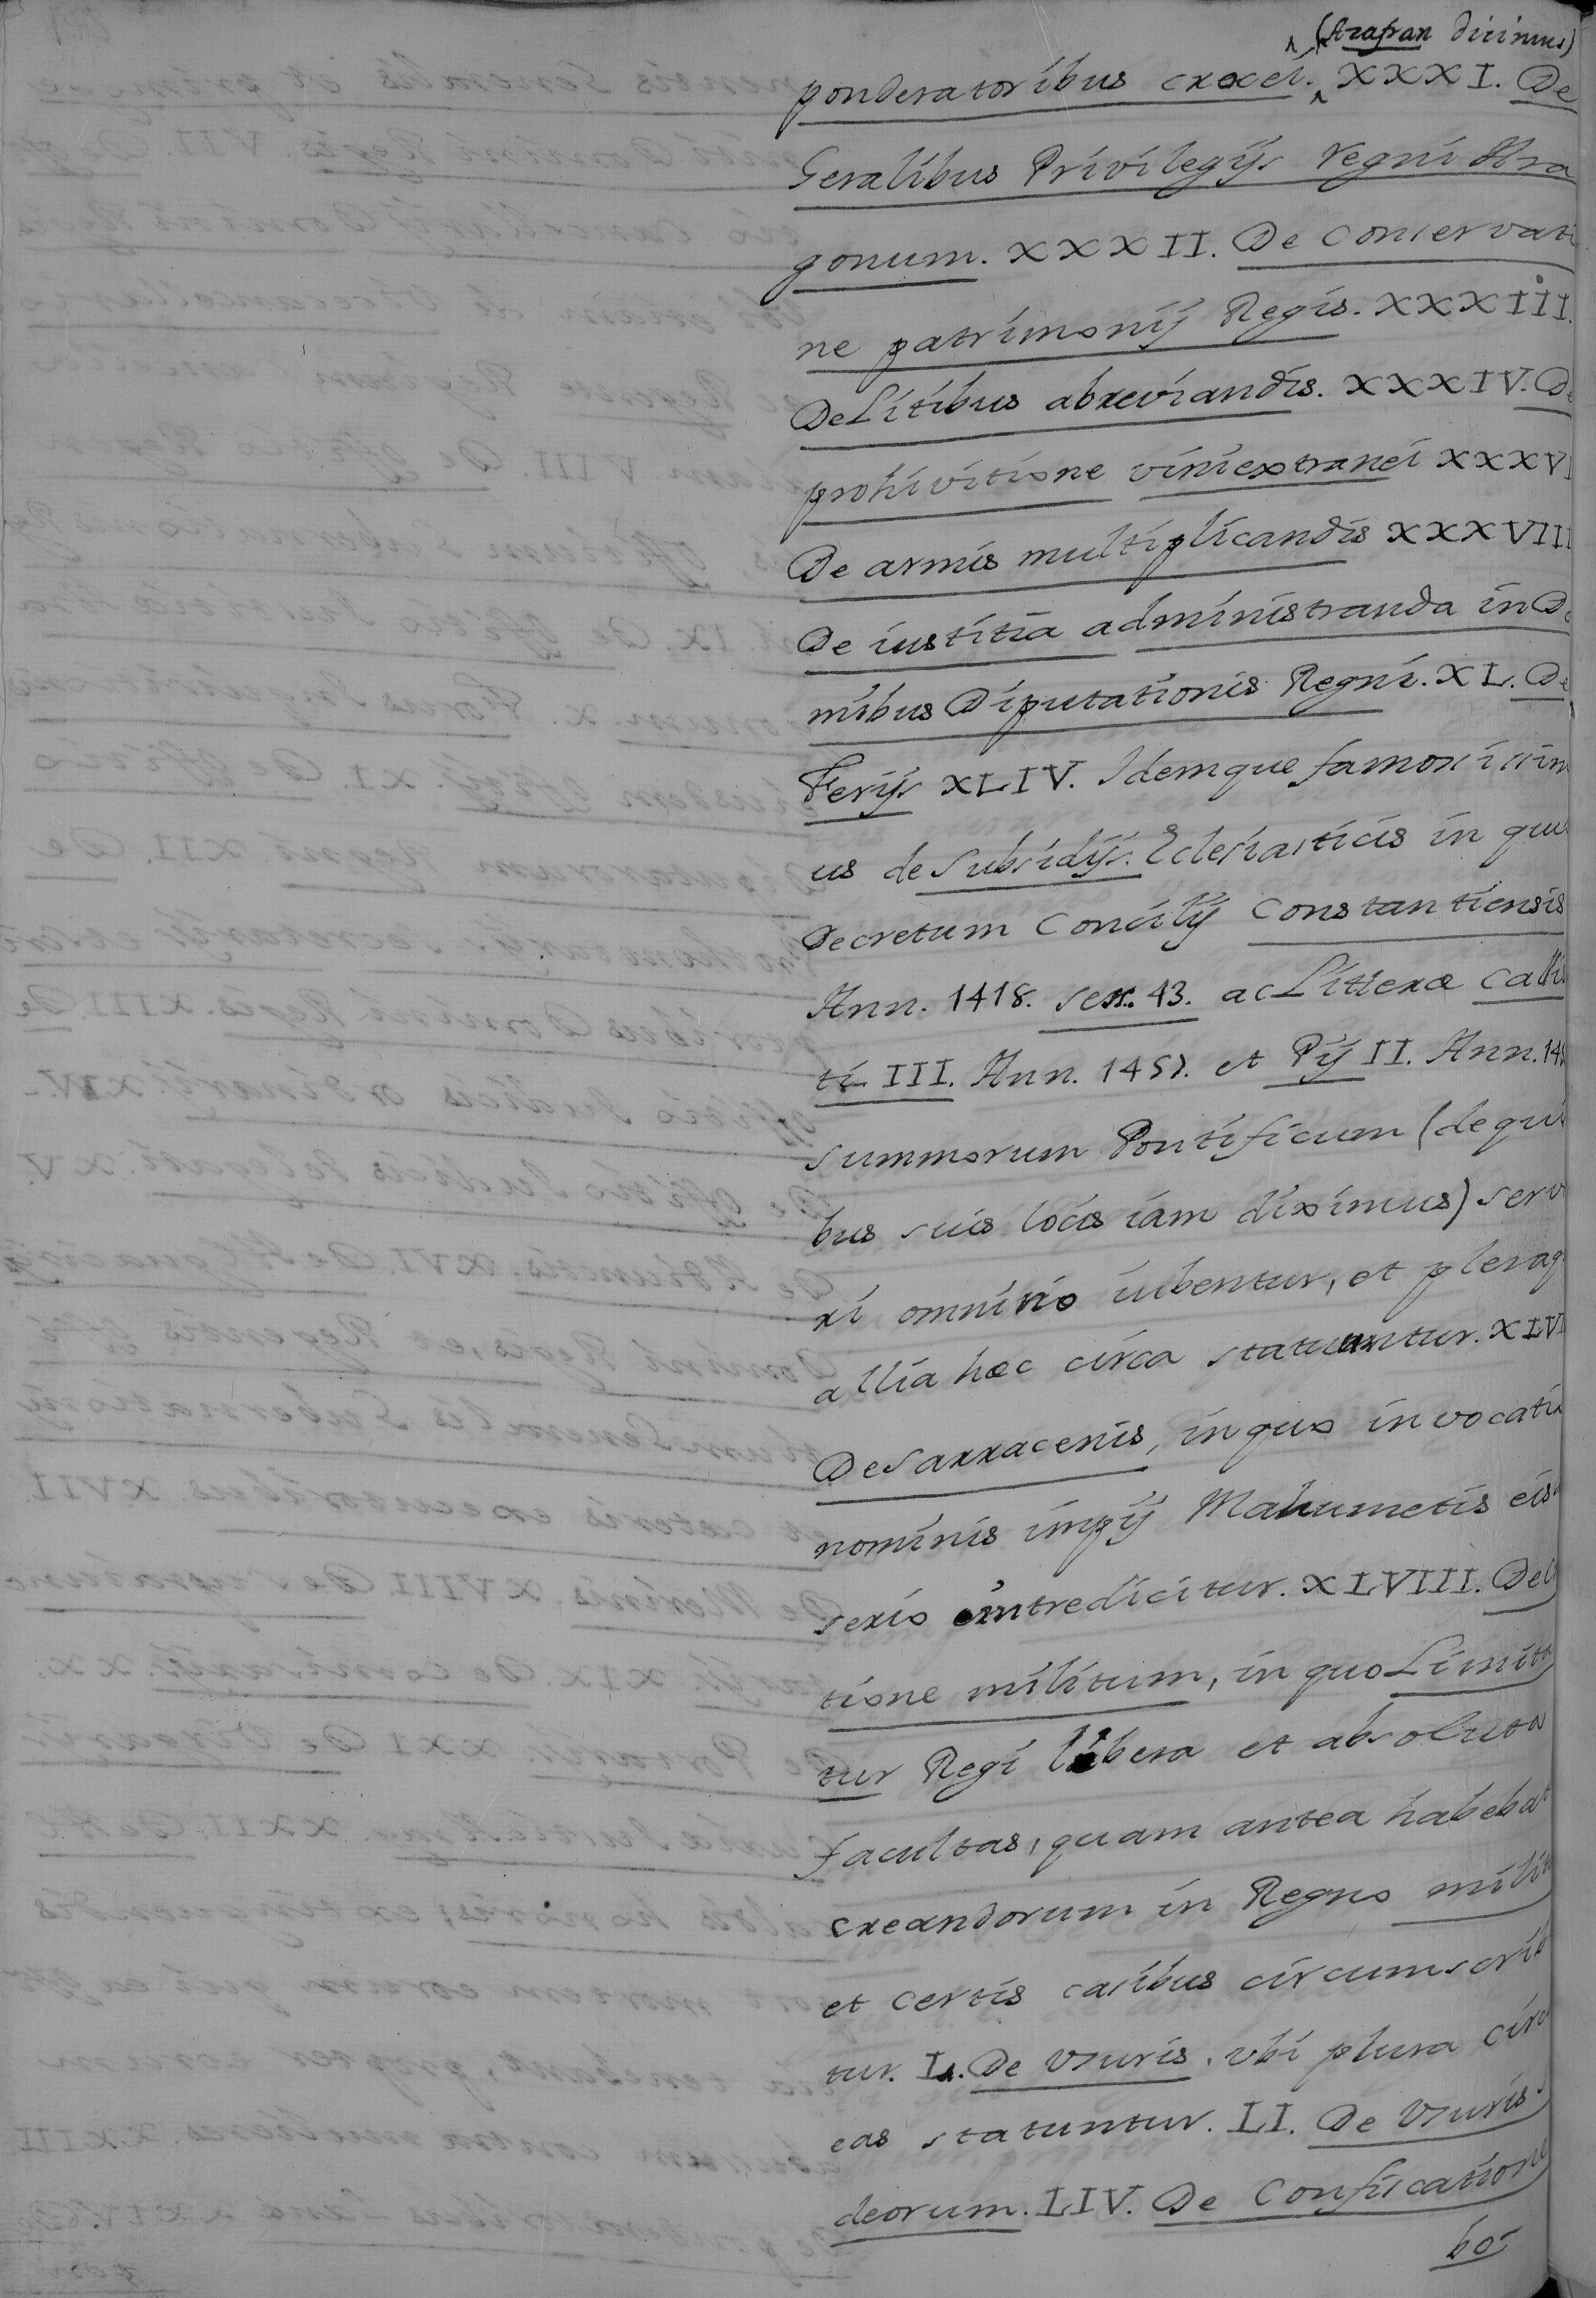 (Azafran dicimus)
ponderatoribus croxei. XXXI. De
Geralibus Privilegijs regni Ara
gonum. XXXII. De conservati
ne patrimonij Regis. XXXIII.
De Litibus abreviandis. XXXIV. De
prohivitione vini extranei XXXVI
De armis multiplicandis XXXVIII
De iustitia administranda in Do
mibus Diputationis Regni. XL. De
Ferijs XLIV. Idemque famosissim
us de subsidijs Eclesiasticis in quo
Decretum Concilij Constantiensis
Ann. 1418. sess. 43. ac Litteræ Calli
ti III. Ann. 1457. et Pij II. Ann. 14
summorum Pontificum (de qui
bus suis locis iam diximus) serv
ri omnino iubentur, et pleraq
allia hæc circa statuuntur. XLVI
De Sarracenis, in quo invocati
nominis impij Mahumetis eis
serio intredicitur. XLVIII. De
tione militum, in quo Limita
tur Regi libera et absoluta
facultas, quam antea habebat
creandorum in Regno milit
et certis casibus circumscrib
tur. L. De Vsuris, vbi plura circ
eas statuntur. LI. De Vsuris
deorum. LIV. De Confiscatione
bo-